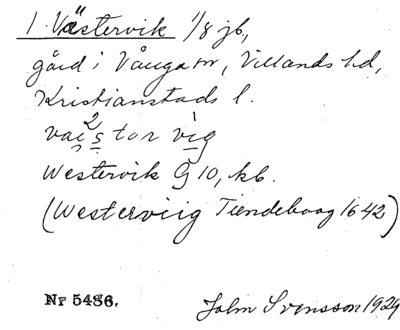 1. Västervik 1/8 jb,
gård i Vånga sn, Villands hd,
Kristianstads l.
västər vig
Westervik G 10, kb.
(Westerviig Tiendebog 1642)
Nr 5486. John Svensson 1929